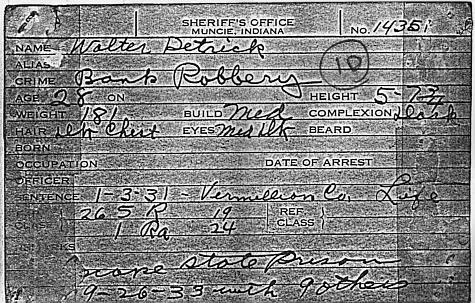 SHERIFF'S OFFICE
MUNCIE, INDIANA No. 14351
NAME Walter Detrick
ALIAS 10
CRIME Bank Robbery
AGE 28 ON HEIGHT 5-7 3/4
WEIGHT 181 BUILD Med COMPLEXION Dark
HAIR Dk Chest EYES Med Dk BEARD
BORN
OCCUPATION DATE OF ARREST
OFFICER
SENTENCE 1-3-31 - Vermillion Co. Life
26 5 R 19 REF.
CLASS 1 Ra 24 CLASS
state Prison
9-26-33 with 9 others